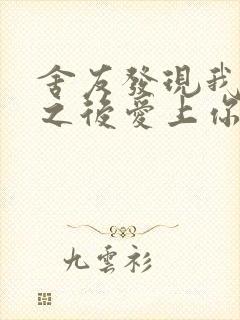 舍友發現我
之後愛上你
九雲衫